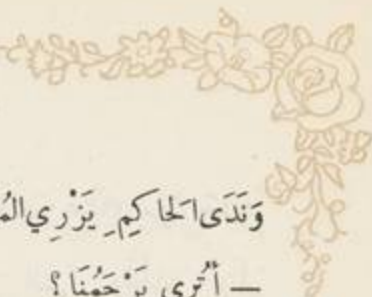 وَنَدَى الحَاكِمِ يَزْرِي
— أَتُرى يَرْحَمُنَا؟